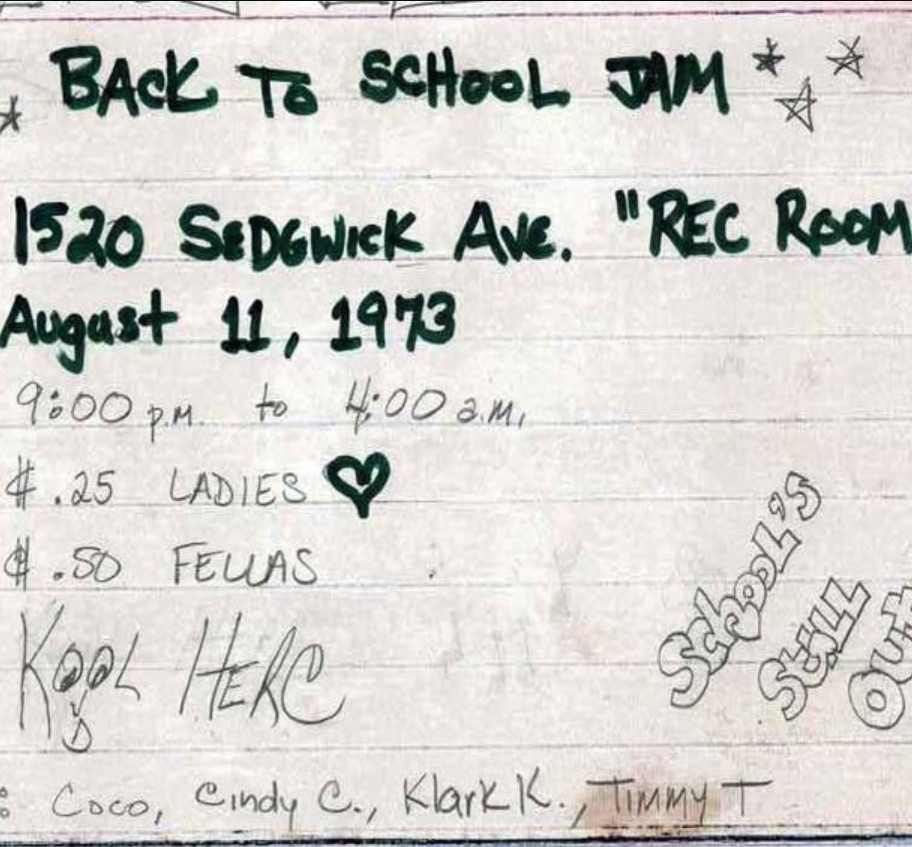 BACK TO SCHOOL JAM
1520 SEDGWICK AVE. "REC ROOM
August 11, 1973
9:00 p.m. to 4:00 a.m.
$ .25 LADIES
$ .50 FELLAS
KOOL HERC
SCHOOL'S
STILL
OUT
: Coco, Cindy C., Klark K., TIMMY T